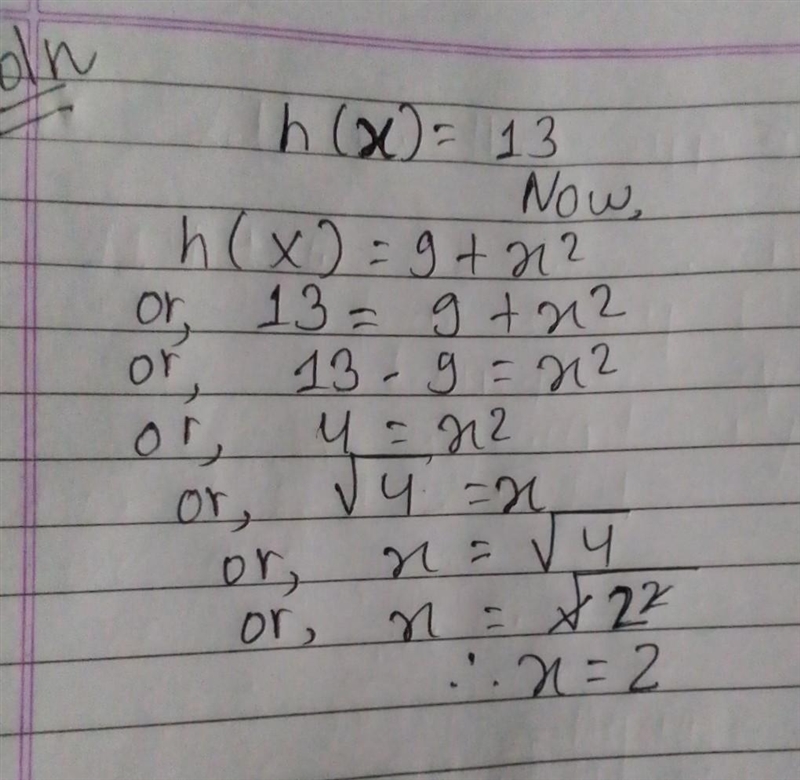 oln
h(x) = 13
Now,
h(x) = 9 + x²
or, 13 = 9 + x²
or, 13 - 9 = x²
or, 4 = x²
or, √4 = x
or, x = √4
or, x = √2²
∴ x = 2